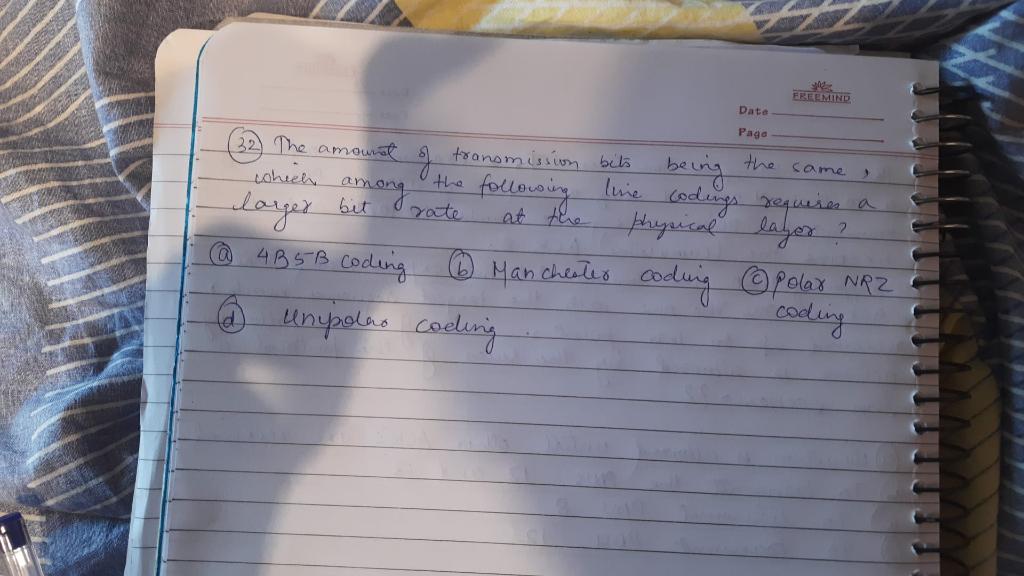 FREEMIND
Date
Page
32 The amount of transmission bits being the same,
which among the following line codings requires a
larger bit rate at the physical layer?
a 4B5B coding b Manchester coding c Polar NRZ
coding
d Unipolar coding.